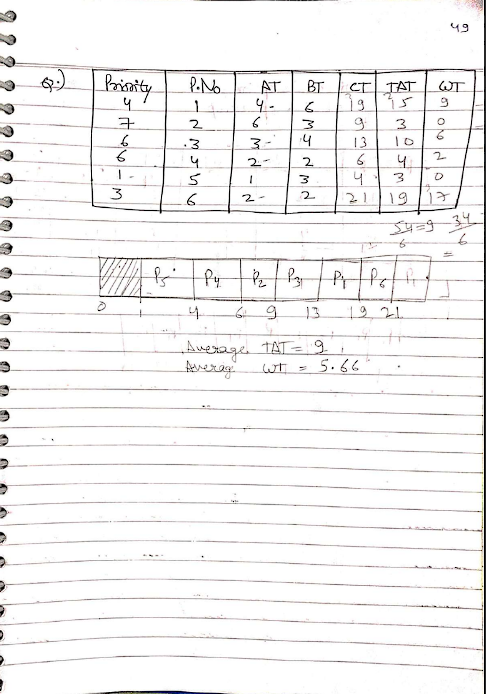 49
Q.) Priority P.No AT BT CT TAT WT
4 1 4- 6 19 15 9
7 2 6 3 9 3 0
6 3 3- 4 13 10 6
6 4 2- 2 6 4 2
1- 5 1 3 4 3 0
3 6 2- 2 21 19 17
54/6=9 34/6
=
P5 P4 P2 P3 P1 P6
0 1 4 6 9 13 19 21
Average TAT = 9
Average WT = 5.66